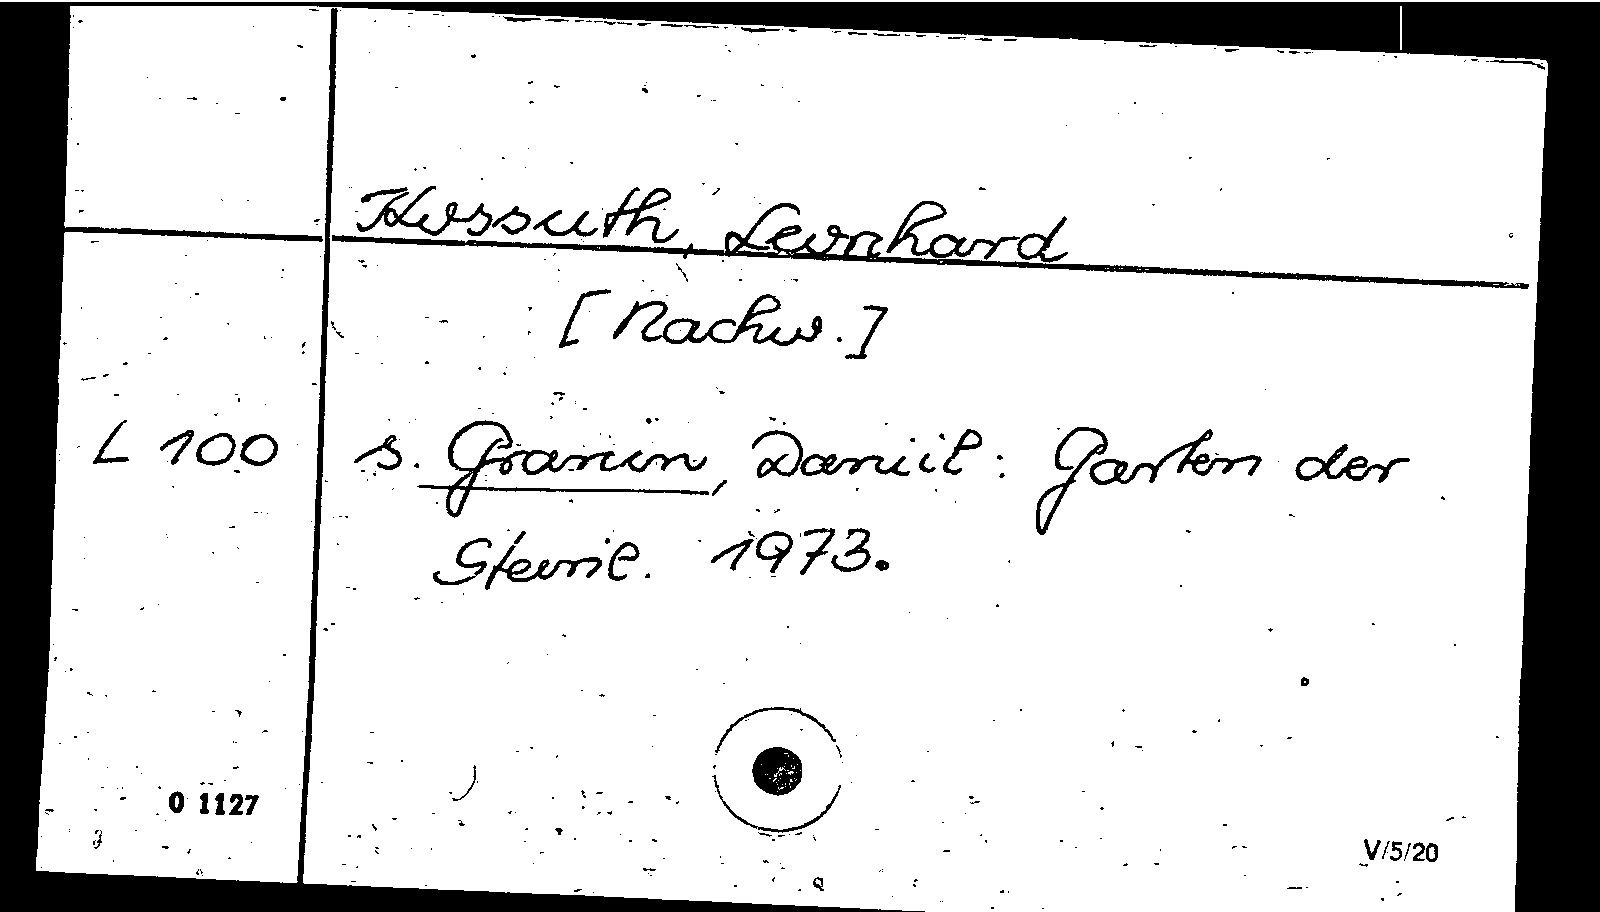 Kossuth, Leonhard
[Nachw.]
L 100 s. Granin, Daniil: Garten der
Steine. 1973.
0 1127
V/5/20